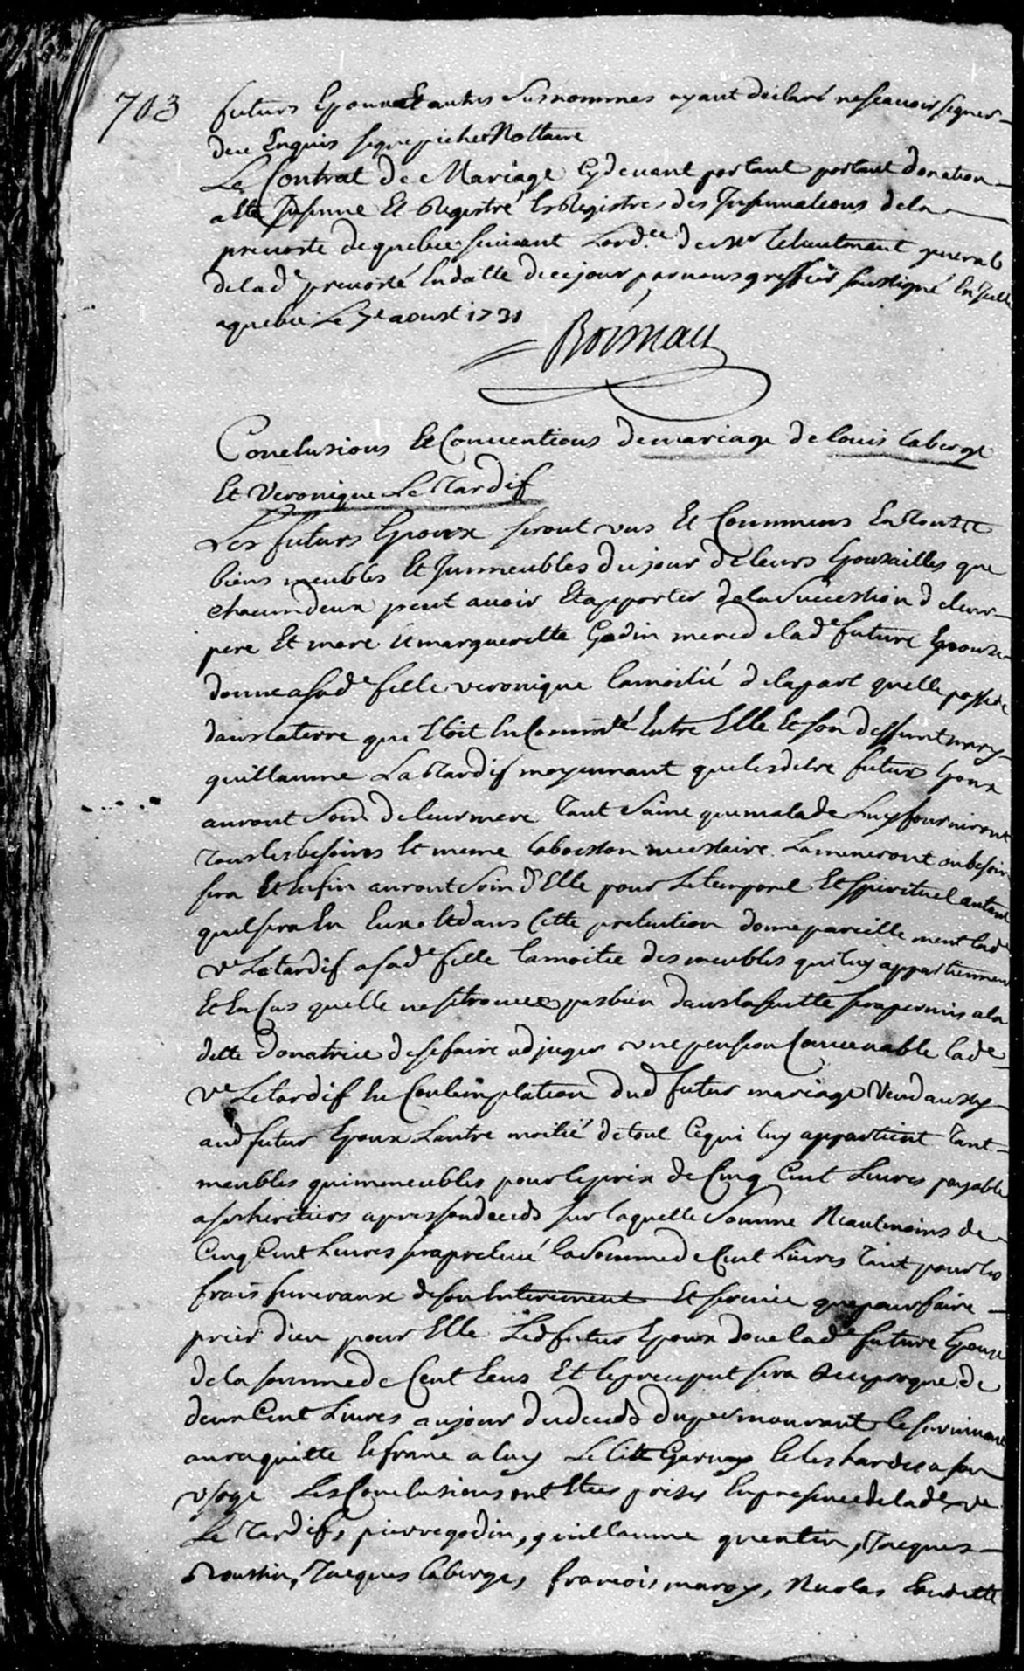 703
futurs Epoux Et autres Susnommes ayant déclaré ne scauoir signer
de ce Enquis signé pichet Nottaire
Le Contrat de Mariage Cy devant portant portant donation
a Esté Insinué Et Registré Es Registres des Insinuations de la
prevosté de quebec suivant Lord.ce de Mr le lieutenant general
de lad.e prevosté En datte de ce jour par nous greffier soussigné En Icelle
a quebec Le 7e aoust 1731
Boisseau
Conclusions Et Conventions de mariage de louis laberge
Et Veronique Le Tardif
Les futurs Epoux seront uns Et Communs En Toutte
biens meubles Et Immeubles du jour de leurs Epousailles que
chacun deux peut avoir Et apporter de la Succession de leur
pere Et mere marguerite Godin mere de lad.e future Epouze
donne a sad.e fille veronique la moitié de la part quelle possede
dans la terre qui Etoit En Comm.té Entre Elle Et son deffunt mary
guillaume La Tardif moyennant que lesdits futurs Epoux
auront Soin de leur mere Tant Saine que malade Luy fourniront
Tous les besoins Et meme la boisson necessaire. La meneront au besoin
sera Et Enfin auront Soin d'Elle pour Le temporel Et Spirituel autant
quil sera En Eux Et dans Cette pretention donne pareillement lad.e
Ve Letardif a sad.e fille la moitie des meubles qui luy appartiennent
Et En Cas quelle ne se trouvee pas bien dans la suitte sera permis a la
ditte Donatrice de se faire adjuger une pension Convenable lad.e
Ve Letardif En Contemplation dud futur mariage Vend aussy
aud futur Epoux Lautre moitié de tout Ce qui luy appartient Tant
meubles quimmeubles pour le prix de Cinq Cent Livres payable
a ses heritiers apres son deceds sur laquelle Somme Neantmoins de
Cinq Cent Livres sera prelevé la Somme de Cent Livres Tant pour les
frais funeraux de son Enterrement Et service que pour faire
prier dieu pour Elle Led futur Epoux doue lad.e future Epouse
de la somme de Cent Ecus Et le preciput sera Reciproque de
deux Cent Livres au jour du deceds du premourant le survivant
aura quitte Et franc a luy Le litt Garny Et les hardes a son
usage Les Conclusions ont Etees prises En presence de lad.e ve
Le Tardif, pierre godin, guillaume quentin, Jacques
Roussin, Jacques laberge, francois maroy, Nicolas